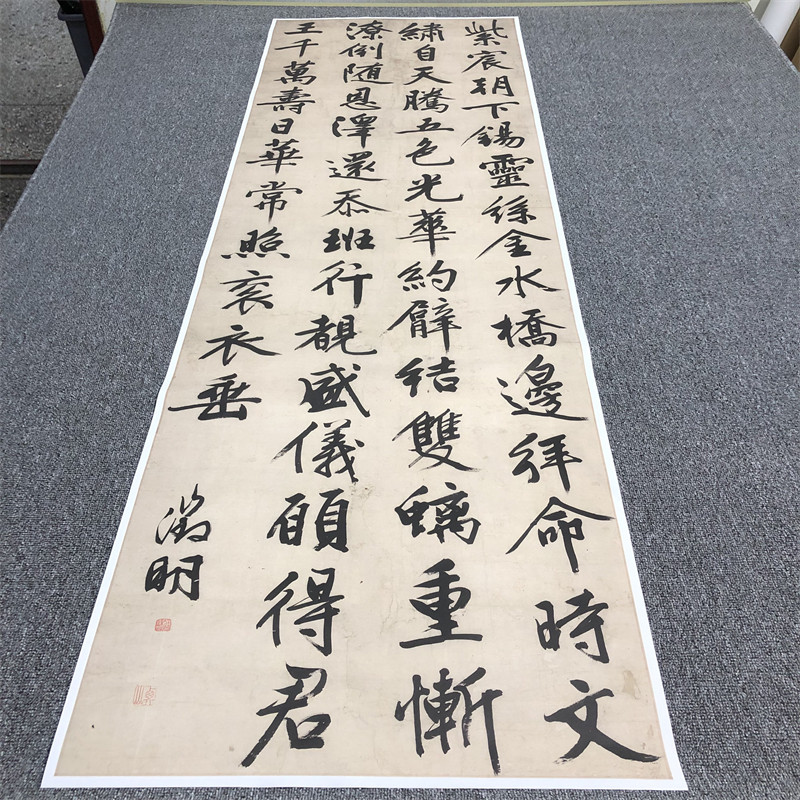 紫宸朝下錫靈絲金水橋邊拜命時文
繡自天騰五色光華約臂結雙螭重慚
潦倒随恩澤還忝班行覩盛儀願得君
王千萬壽日華常照袞衣垂
徵明